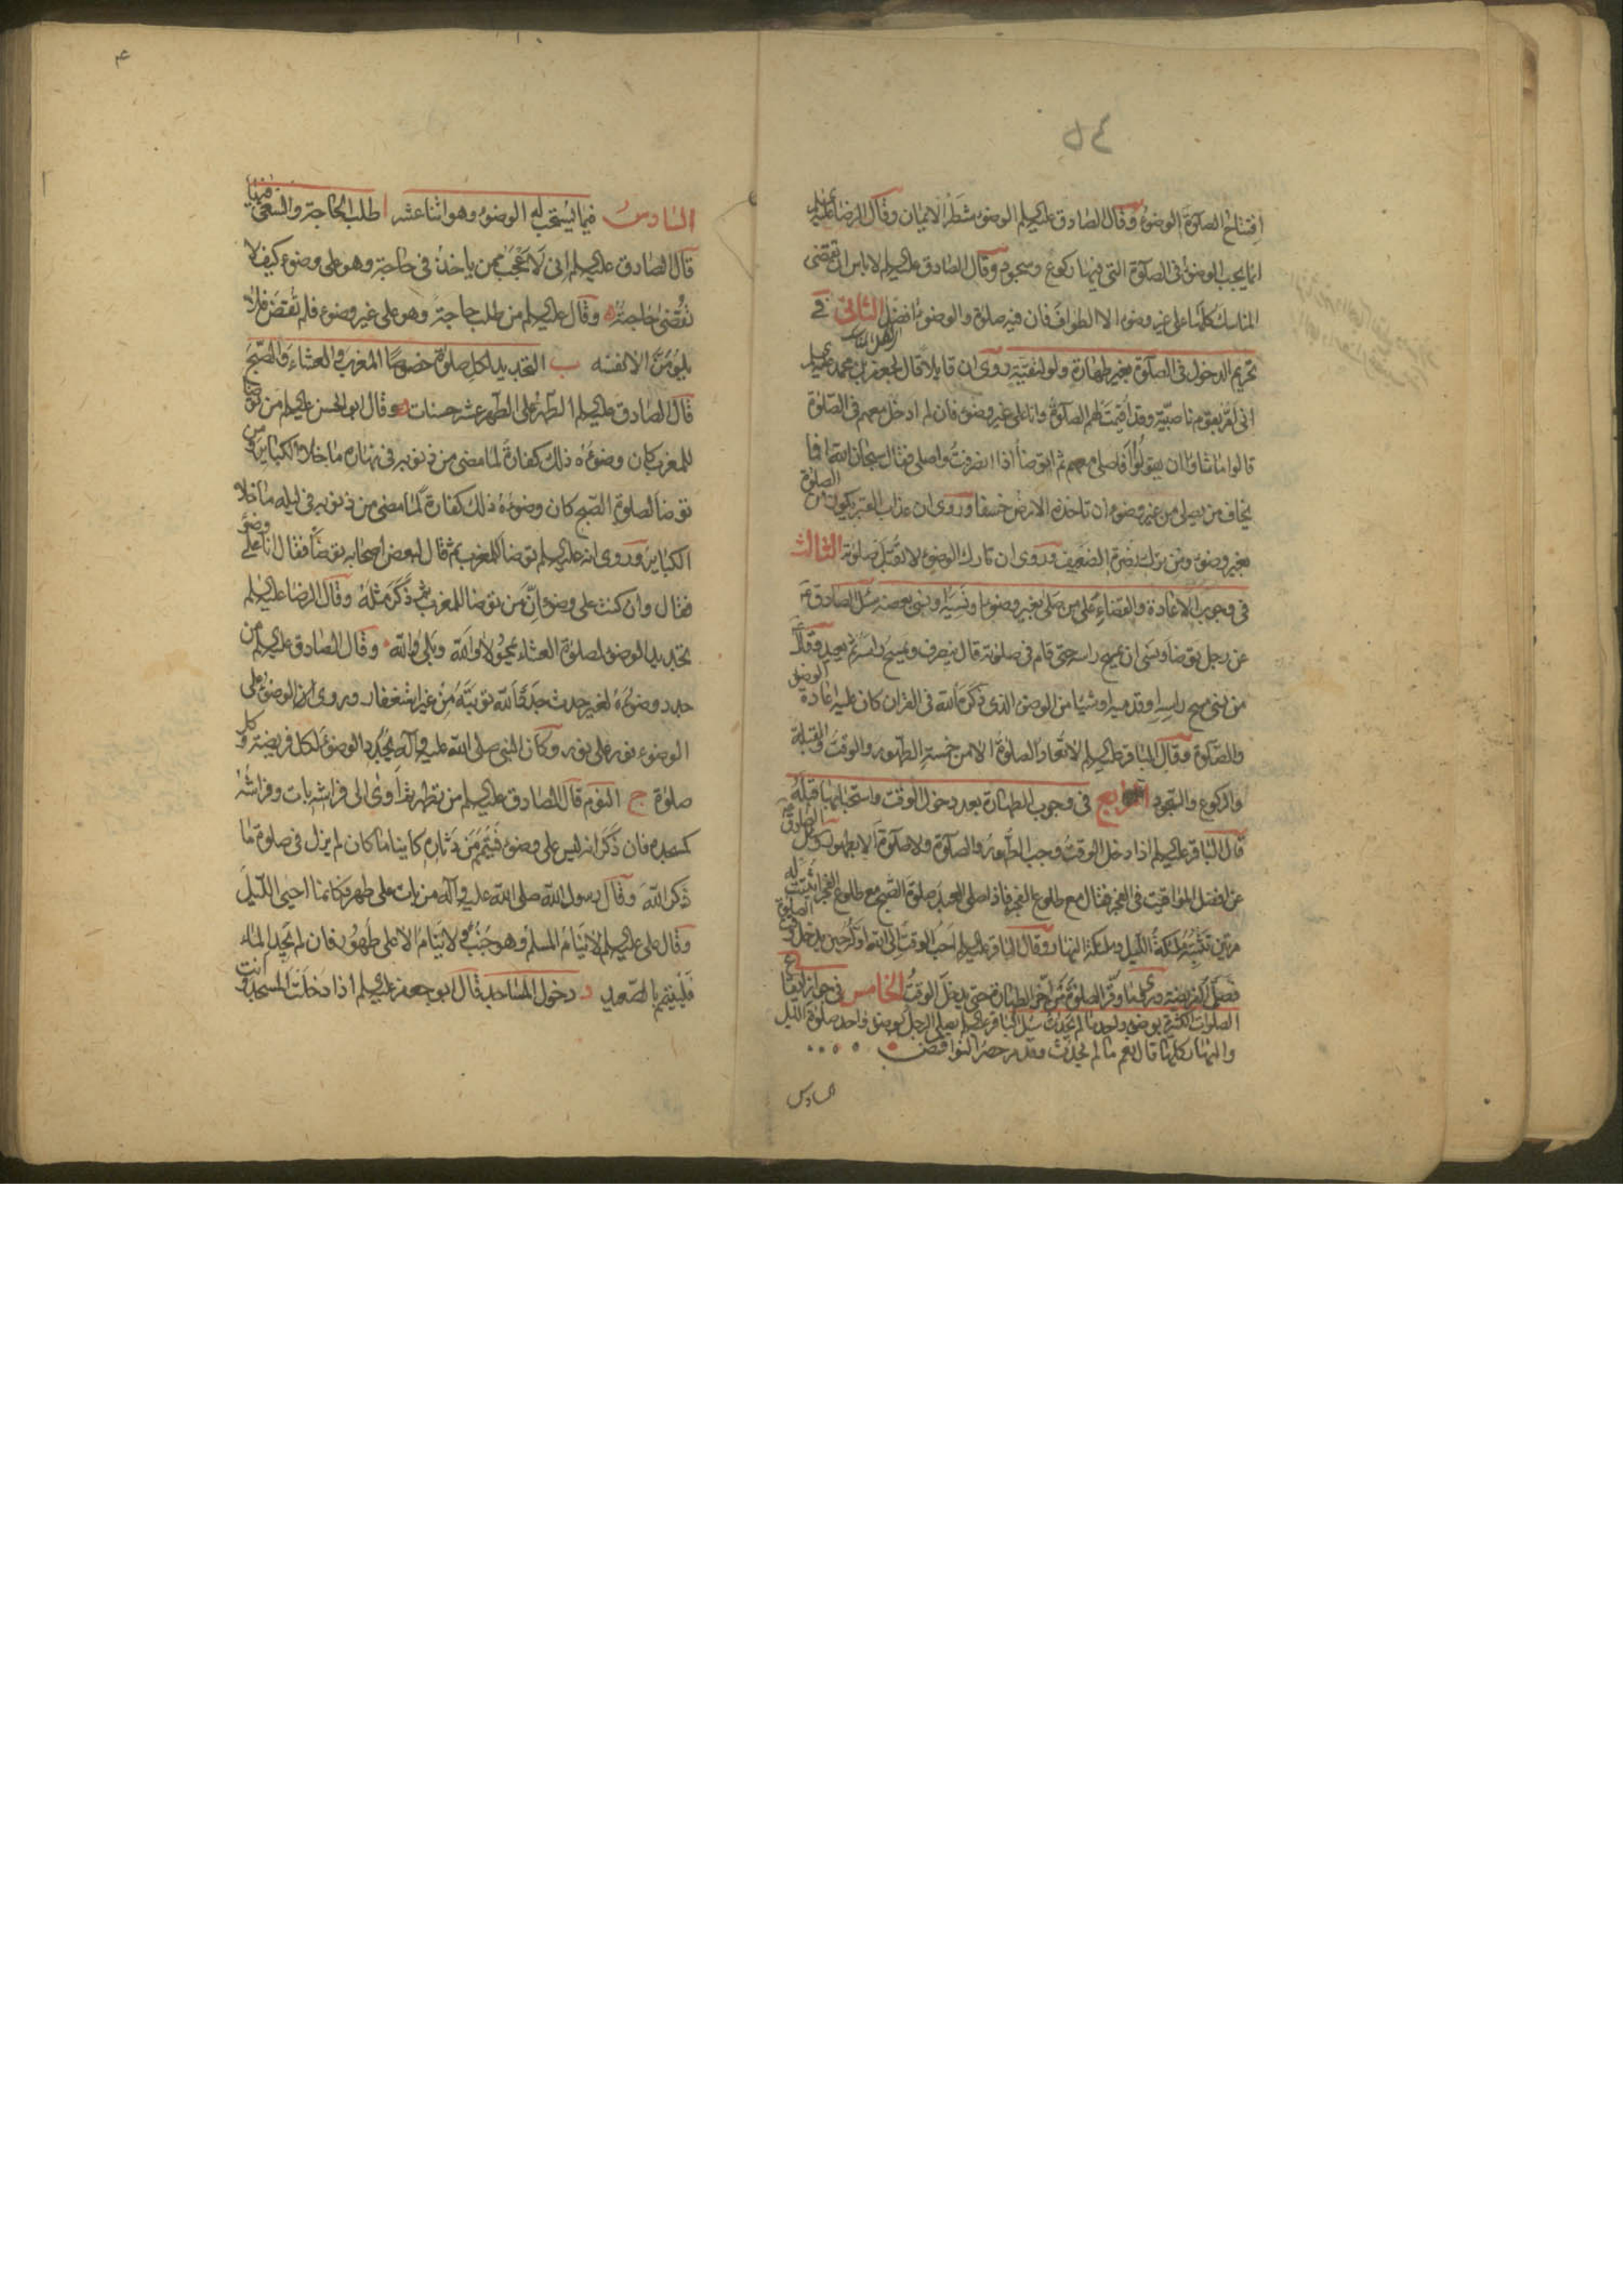 افتتاح الصلوة الوضوء وقال الصادق عليه السلم الوضوء شطر الايمان وقال الرضا عليه
انما يجب الوضوء فى الصلوة التى فيها ركوع وسجود وقال الصادق عليه السلم لا باس ان تقضى
المناسك كلها على غير وضوء الا الطواف فان فيه صلوة والوضوء افضل الثانى فى
تحريم الدخول فى الصلوة بغير طهارة ولو لتقية روى ان قايلا قال لجعفر بن محمد
انى امر بقوم ناصبية وقد اقيمت لهم الصلوة وانا على غير وضوء فان لم ادخل معهم فى الصلوة
قالوا ما شاؤا ان يقولوا فاصلى معهم ثم اتوضأ اذا انصرفت واصلى فقال سبحان الله افما
يخاف من يصلى من غير وضوء ان تاخذه الارض خسفا وروى ان عذاب القبر يكون من الصلوة
بغير وضوء ومن ترك نصرة الضعيف وروى ان تارك الوضوء لا تقبل صلوته الثالث
فى وجوب الاعادة والقضاء على من صلى بغير وضوء او نسيه او نسى بعضه سئل الصادق ع
عن رجل توضأ ونسى ان يمسح راسه حتى قام فى صلوته قال ينصرف ويمسح راسه ثم يعيد وقال
من نسى مسح راسه او قدميه او شيئا من الوضوء الذى ذكره الله فى القران كان عليه اعادة الوضوء
والصلوة وقال الباقر عليه السلم لا تعاد الصلوة الا من خمسة الطهور والوقت والقبلة
والركوع والسجود الرابع فى وجوب الطهارة بعد دخول الوقت واستحبابها قبله
قال الباقر عليه السلم اذا دخل الوقت وجب الطهور والصلوة ولا صلوة الا بطهور وسئل الصادق ع
عن افضل المواقيت فى الفجر فقال مع طلوع الفجر فاذا صلى العبد صلوة الصبح مع طلوع الفجر اثبتت له
مرتين تثبته ملئكة الليل وملئكة النهار وقال الباقر عليه السلم احب الوقت الى الله اوله حين يدخل وقت الصلوة
فصل الفريضة وروى ما وقر الصلوة من اخر الطهارة حتى يدخل الوقت الخامس فى جواز ايقاع
الصلوات الكثيرة بوضوء واحد ما لم يحدث سئل الباقر عليه السلم يصلى الرجل بوضوء واحد صلوة الليل
والنهار كلها قال نعم ما لم يحدث وقد مر حصر النواقض
السادس
السادس فيما يستحب له الوضوء وهو اثنا عشر ا طلب الحاجة والسعى فيها
قال الصادق عليه السلم انى لاعجب ممن ياخذ فى حاجة وهو على وضوء كيف لا
تقضى حاجته وقال عليه السلم من طلب حاجة وهو على غير وضوء فلم تقض فلا
يلومن الا نفسه ب التجديد لكل صلوة خصوصا المغرب والعشاء والصبح
قال الصادق عليه السلم الطهر على الطهر عشر حسنات وقال ابى الحسن عليه السلم من توضأ
للمغرب كان وضوءه ذلك كفارة لما مضى من ذنوبه فى نهاره ما خلا الكباير ومن
توضأ لصلوة الصبح كان وضوءه ذلك كفارة لما مضى من ذنوبه فى ليله ما خلا
الكباير وروى انه عليه السلم توضأ للمغرب ثم قال لبعض اصحابه توضأ فقال انا على وضوء
فقال وان كنت على وضوء ان من توضأ للمغرب ثم ذكر مثله وقال الرضا عليه السلم
تجديد الوضوء لصلوة العشاء يمحو لا والله وبلى والله وقال الصادق عليه السلم من
جدد وضوءه لغير حدث جدد الله توبته من غير استغفار وروى ان الوضوء على
الوضوء نور على نور وكان النبى صلى الله عليه وآله يجدد الوضوء لكل فريضة وكل
صلوة ج النوم قال الصادق عليه السلم من تطهر ثم اوى الى فراشه بات وفراشه
كمسجده فان ذكر انه ليس على وضوء فتيمم من دثاره كاينا ما كان لم يزل فى صلوة ما
ذكر الله وقال رسول الله صلى الله عليه وآله من بات على طهر فكانما احيى الليل
وقال على عليه السلم لا ينام المسلم وهو جنب ولا ينام الا على طهور فان لم تجد الماء
فليتيمم بالصعيد د دخول المساجد قال ابو جعفر عليه السلم اذا دخلت المسجد وانت